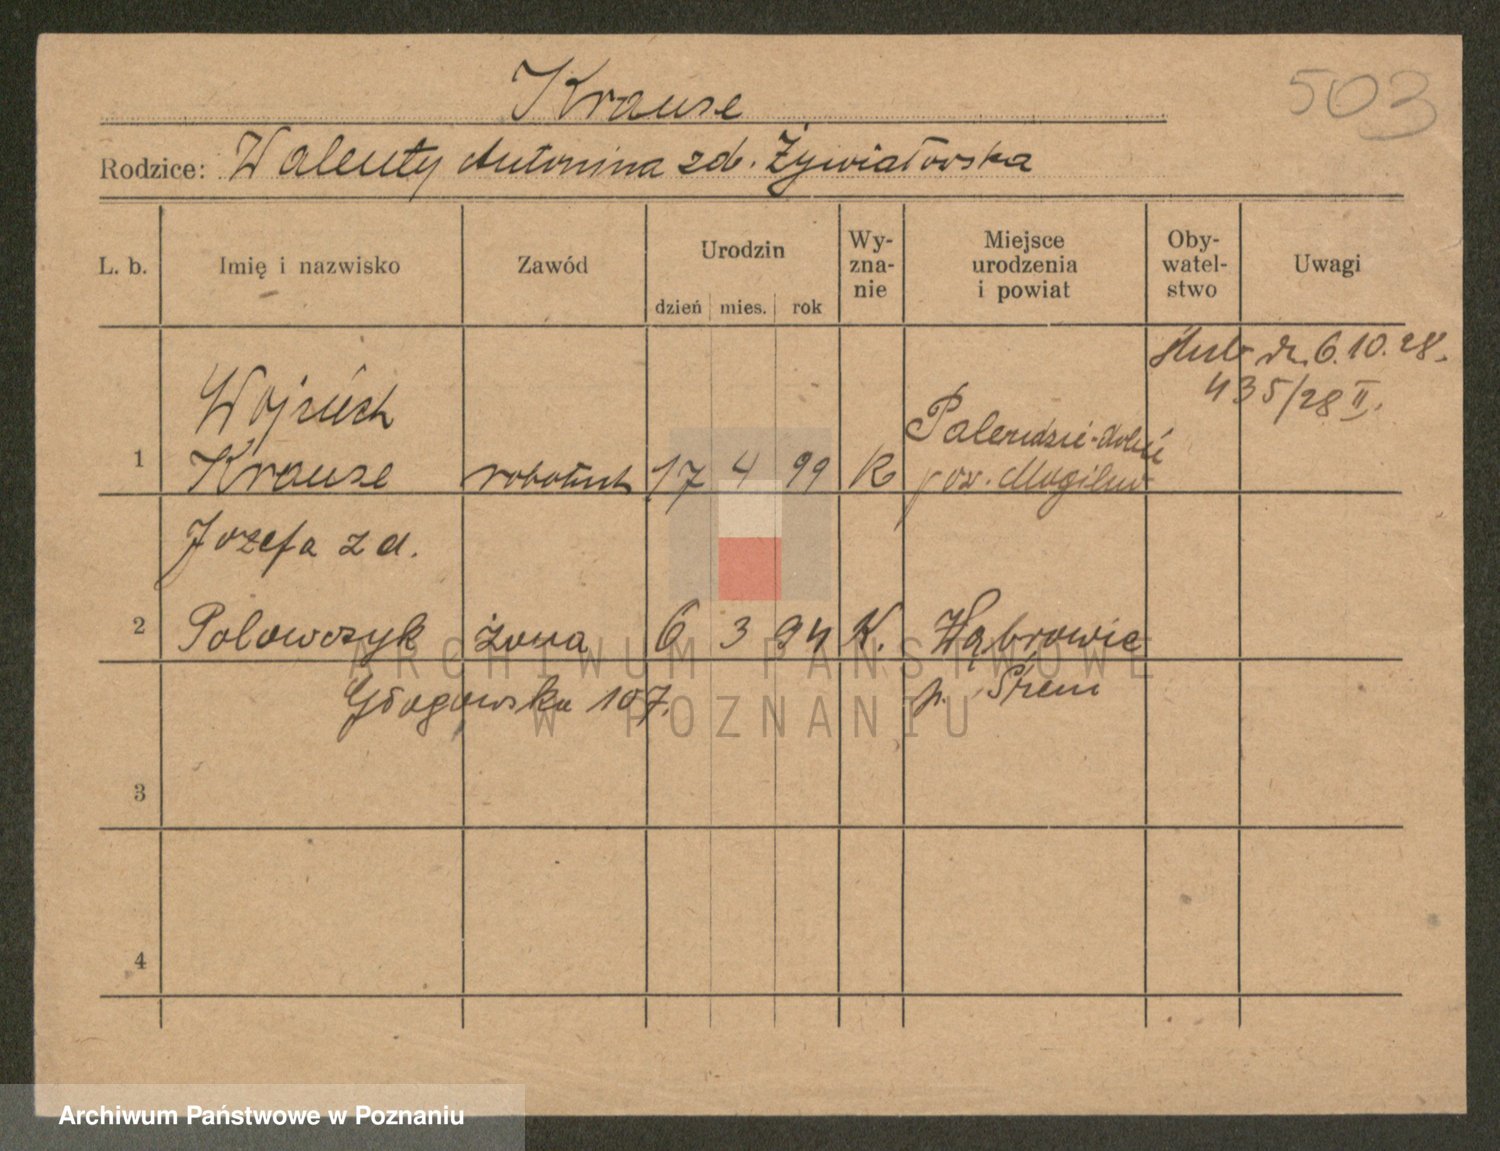 503
Krause
Rodzice: Walenty Antonina zd. Żywiałowska
L. b.
Imię i nazwisko
Zawód
Urodzin
dzień mies. rok
Wy-
zna-
nie
Miejsce
urodzenia
i powiat
Oby-
watel-
stwo
Uwagi
ślub dn. 6.10.28.
435/28 II.
Wojciech
1 Krause robotnik 17 4 99 R
pow. Mogilno
Józefa zd.
2 Polowczyk żona 6 3 94 K.
Głogowska 107.
p. Śrem
3
4
ARCHIWUM PAŃSTWOWE
W POZNANIU
Archiwum Państwowe w Poznaniu